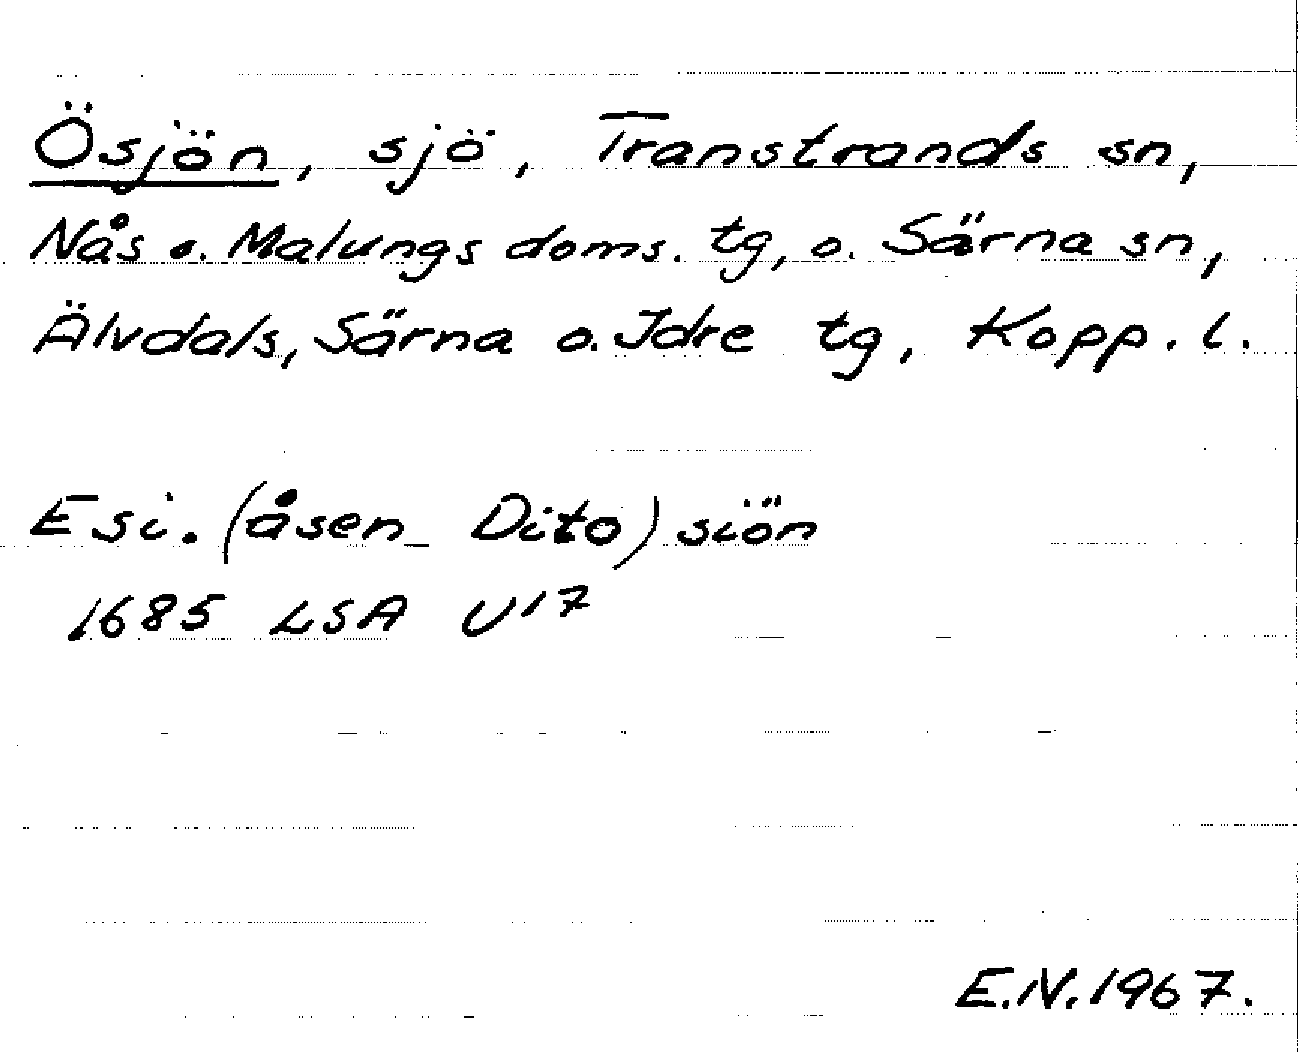 Ösjön, sjö, Transtrands sn,
Nås o. Malungs doms. tg, o. Särna sn,
Älvdals, Särna o. Idre tg, Kopp. l.
Esi. (åsen Dito) siön
1685 LSA U17
E.N. 1967.